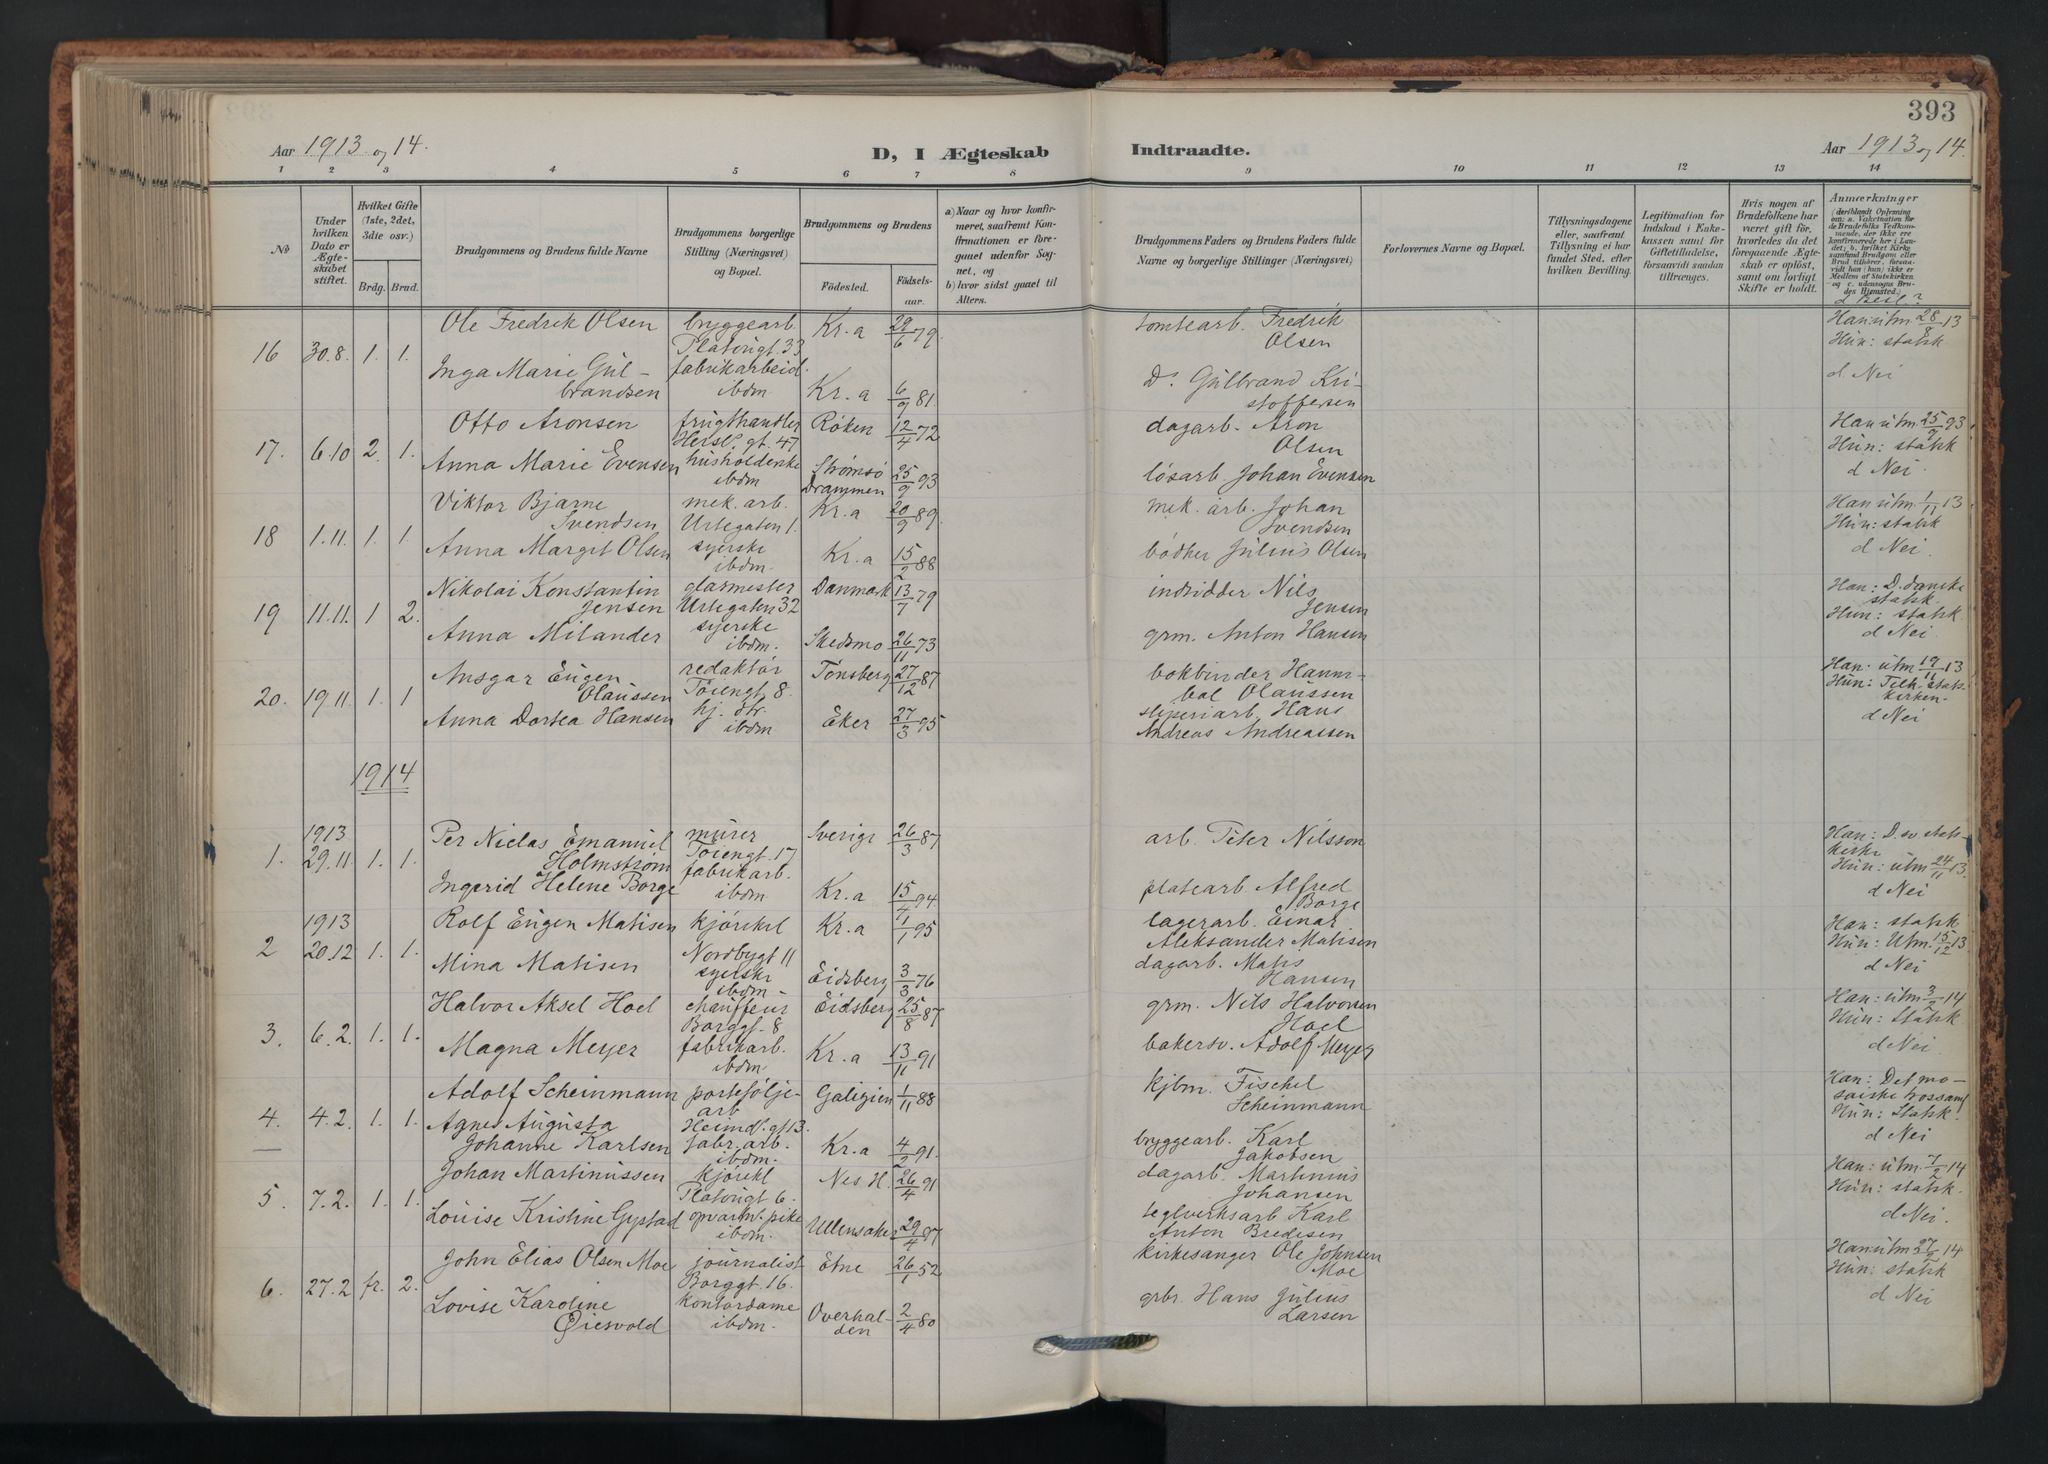 393
Aar 1913 og 14.
D, I Ægteskab Indtraadte.
Aar 1913 og 14.
1 2 3 4 5 6 7 8 9 10 11 12 13 14
No
Under hvilken Dato er Ægteskabet stiftet.
Hvilket Gifte (1ste, 2det, 3die osv.)
Brdg. Brud.
Brudgommens og Brudens fulde Navne
Brudgommens borgerlige Stilling (Næringsvei) og Bopæl.
Brudgommens og Brudens
Födested.
Födselsaar.
a) Naar og hvor konfirmeret, saafremt Konfirmationen er foregaaet udenfor Sognet, og
b) hvor sidst gaaet til Alters.
Brudgommens Faders og Brudens Faders fulde Navne og borgerlige Stillinger (Næringsvei)
Forlovernes Navne og Bopæl.
Tillysningsdagene eller, saafremt Tillysning ei har fundet Sted, efter hvilken Bevilling.
Legitimation for Indskud i Enkekassen samt for Giftetilladelse, forsaavidt saadan tiltrænges.
Hvis nogen af Brudefolkene har været gift för, hvorledes da det foregaaende Ægteskab er oplöst, samt om lovligt Skifte er holdt.
Anmærkninger
d Besl?
16 30.8. 1. 1.
Ole Fredrik Olsen bryggearb. Platougt. 33 Kr.a 29/6 79. tomtearb. Fredrik Olsen Han: utm. 28/8 13
Hun: statsk
Inga Marie Gulbrandsen fabrikarbeid. ibdm Kr.a 6/9 81. Do. Gulbrand Kristoffersen d. Nei
17. 6.10 2. 1.
Otto Aronsen frugthandler Hersl. gt. 47 Røken 12/4 72 dagarb. Aron Olsen Han utm. 25/9 93
Hun: statsk
Anna Marie Evensen husholderske ibdm Strømsø Drammen 25/9 93 løsarb. Johan Evensen d Nei
18 1.11. 1. 1.
Viktor Bjarne Svendsen mek. arb. Urtegaten 1. Kr.a 20/9 89. mek. arb. Johan Svendsen Han utm. 1/11 13
Hun: statsk
Anna Margit Olsen syerske ibdm. Kr.a 15/2 88 bødker Julius Olsen d Nei.
19 11.11. 1 2.
Nikolai Konstantin Jensen glarmester Urtegaten 32 Danmark 13/7 79 indsidder Nils Jensen Han: D. danske statsk.
Hun: statsk
Anna Milander syerske ibdm. Skedsmo 26/11 73 grm. Anton Hansen d Nei.
20. 19.11. 1. 1
Ansgar Eugen Olaussen redaktør Tøiengt. 8. Tønsberg 27/12 87 bokbinder Hannibal Olaussen Han: utm 19/11 13
Hun: Tilh. statskirken
Anna Dortea Hansen hj. dtr. ibdm Eker 27/3 95 sliperiarb. Hans Andreas Andreassen d Nei
1914
1. 1913 29.11. 1. 1.
Per Niclas Emanuel Holmstrøm murer Tøiengt. 17 Sverige 26/3 87 arb. Peter Nilsson Han: D. sv. statskirke
Hun: utm 24/11 13.
Ingerid Helene Borge fabrikarb. ibdm Kr.a 15/4 94 platearb. Alfred Borge d Nei
2 1913 20.12 1. 1.
Rolf Eugen Matisen kjørekl Nordbygt 11 Kr.a 1/1 95 lagerarb. Einar Aleksander Matisen Han: statsk
Hun: Utm. 15/12 13
Mina Matisen syerske ibdm Eidsberg 3/3 76 dagarb. Mats Hansen d Nei
3. 6.2. 1. 1.
Halvor Aksel Hoel chauffeur Borggt. 8 Eidsberg 25/8 87 grm. Nils Halvorsen Hoel Han: utm 3/2 14
Hun: Statsk
Magna Meyer fabrikarb. ibdm Kr.a 13/11 91 bakersv. Adolf Meyer d Nei.
4. 4.2. 1. 1.
Adolf Scheinmann porteføljearb Heimd. gt 13. Galizien 1/11 88 kjbm. Fischel Scheinmann Han: Det mosaiske trossamf
Hun: Statsk
Agnes Augusta Johanne Karlsen fabr. arb. ibdm. Kr.a 4/2 91. bryggearb. Karl Jakobsen d Nei
5. 7.2. 1. 1.
Johan Martinussen kjørekl Platougt 6. Nes H. 26/4 91 dagarb. Martinius Johansen Han: utm. 7/2 14
Hun: statsk.
Louise Kristine Gystad opvartn. pike ibdm. Ullensaker 29/4 87 teglverksarb Karl Anton Bredesen d Nei.
6. 27.2 fr. 2.
John Elias Olsen Moe journalist Borggt 16. Etne 26/1 52 kirkesanger Ole Johnsen Moe Han: utm 27/2 14
Hun: statsk
Lovise Karoline Øiesvold kontordame ibdm. Overhalden 2/4 80 grbr. Hans Julius Larsen d Nei